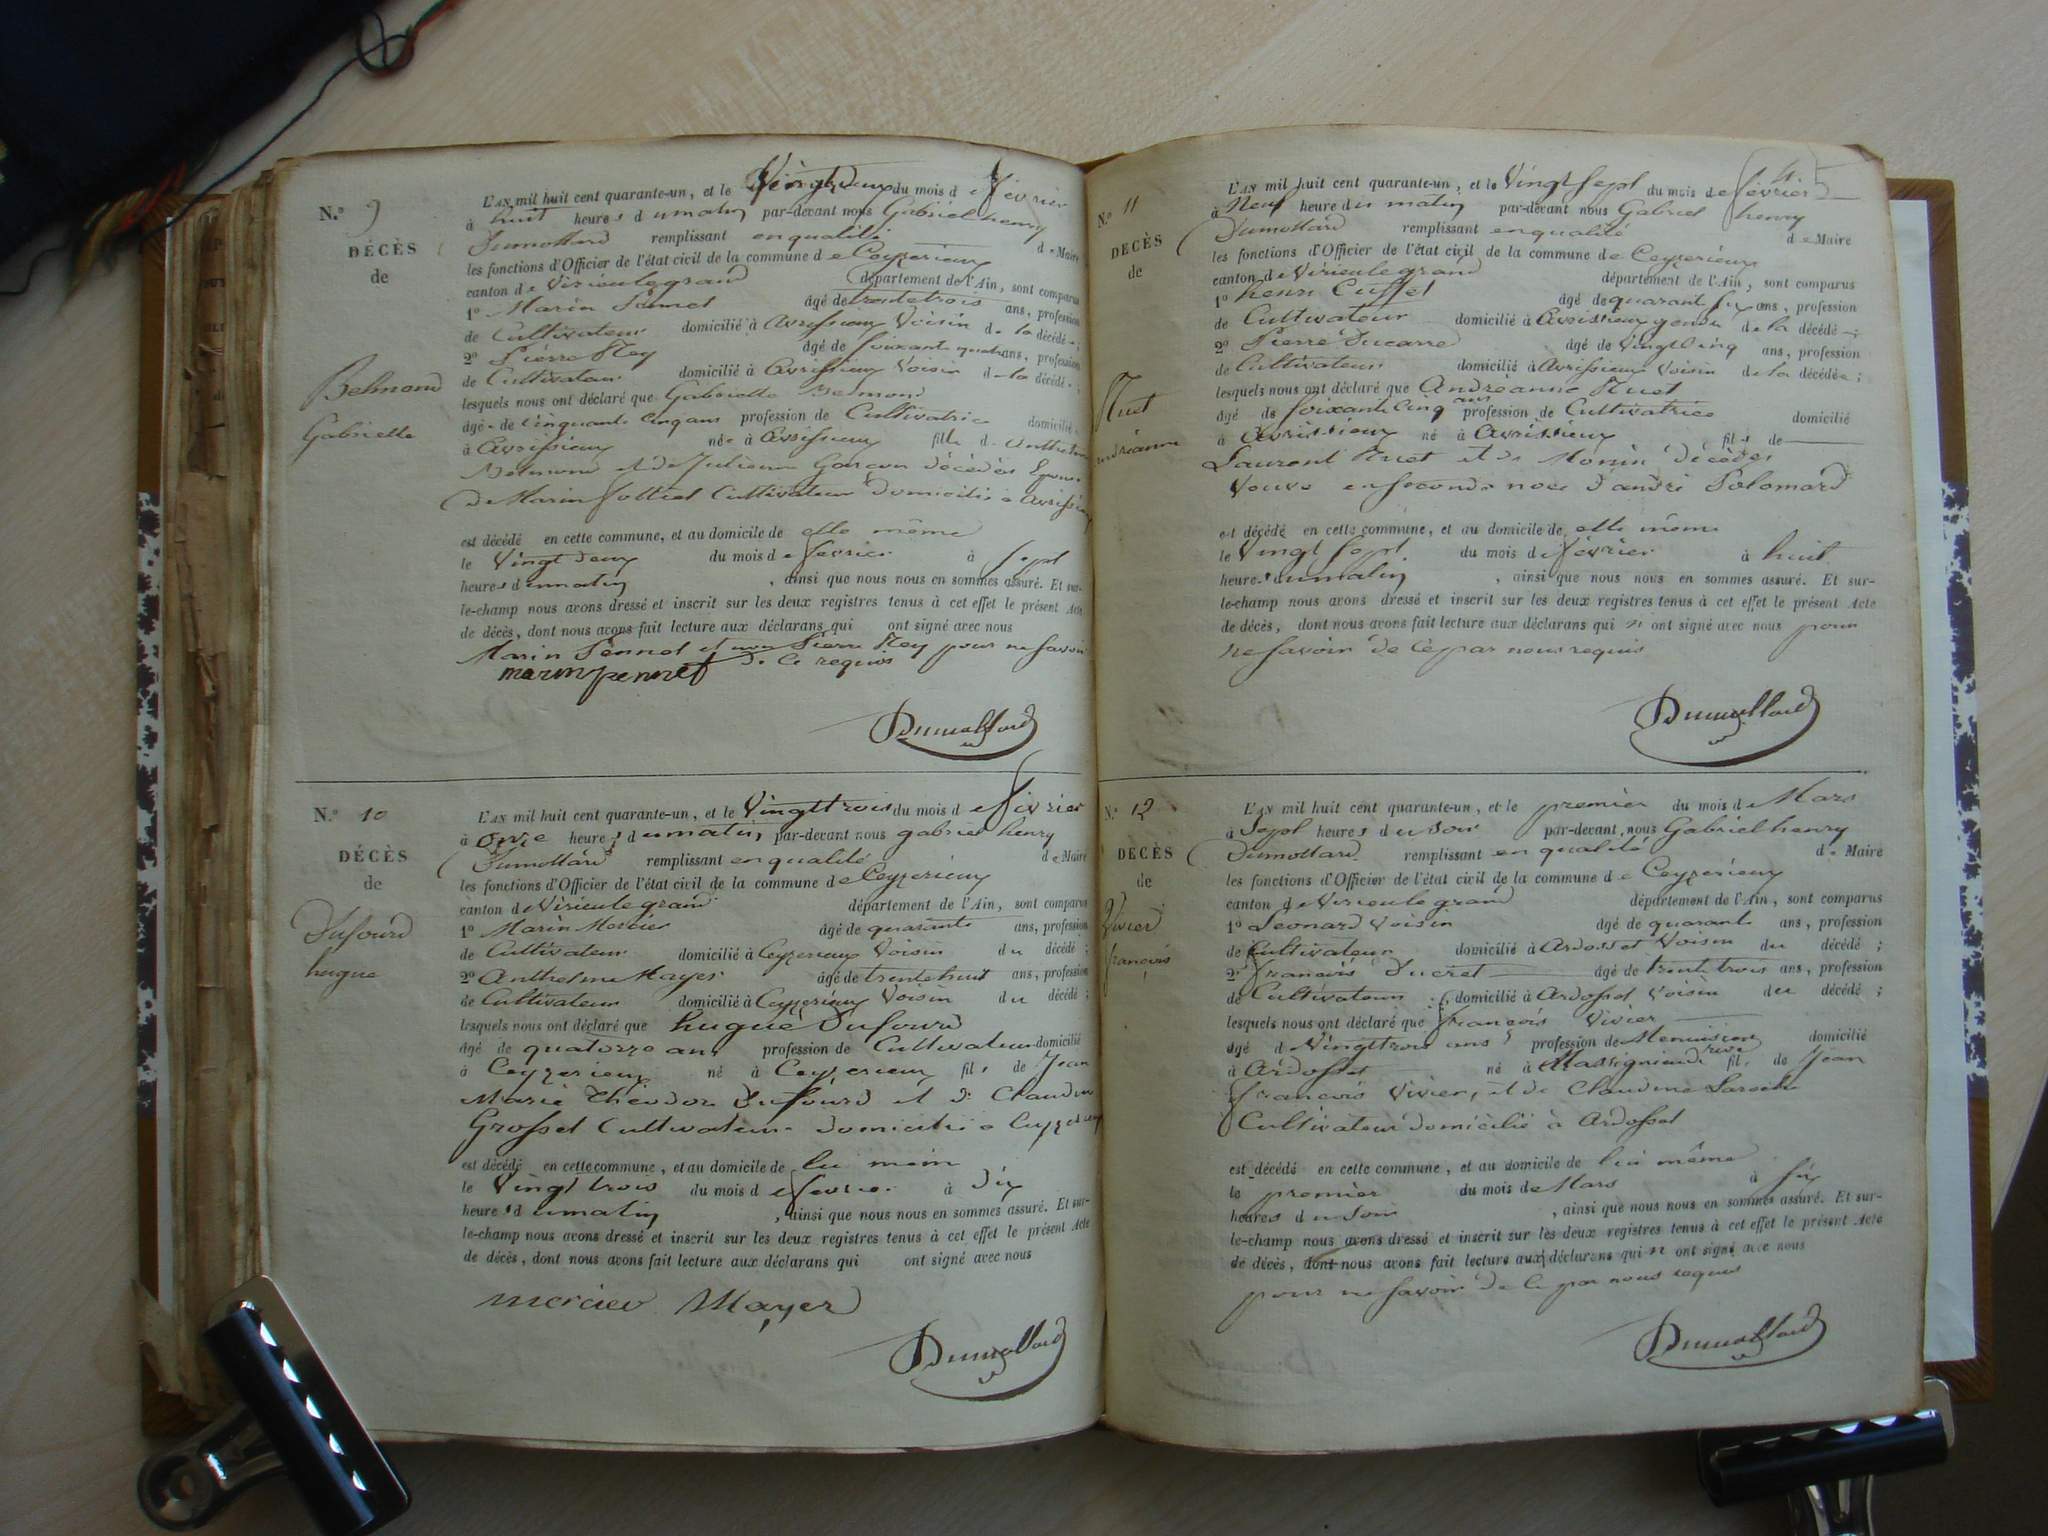 N.º 9
DÉCÈS
de
Belmond
Gabrielle
L'AN mil huit cent quarante-un, et le Vingtdeux du mois de février
à huit heures du matin par-devant nous Gabriel henry
Dumollard remplissant en qualité de Maire
les fonctions d'Officier de l'état civil de la commune de Ceyzerieux
canton de Virieulegrand département de l'Ain, sont comparus
1º Marin Pennet âgé de trentetrois ans, profession
de Cultivateur domicilié à Avrissieux Voisin de la décédée;
2º Pierre Rey âgé de soixante quatre ans, profession
de Cultivateur domicilié à Avrissieux Voisin de la décédée;
lesquels nous ont déclaré que Gabrielle Belmond
âgée de Cinquante Cinq ans profession de Cultivatrice domicilié
à Avrissieux née à Avrissieux fille d'Anthelme
Belmond et de Julienne Garçon décédés Epouse
de Marin Cultivateur domicilié à Avrissieux
est décédé en cette commune, et au domicile de elle même
le Vingt deux du mois de fevrier à sept
heures du matin, ainsi que nous nous en sommes assuré. Et sur-
le-champ nous avons dressé et inscrit sur les deux registres tenus à cet effet le présent Acte
de décès, dont nous avons fait lecture aux déclarans qui ont signé avec nous
Marin Pennet et non Pierre Rey pour ne savoir
de ce requis
marin pennet
Dumollard
N.º 10
DÉCÈS
de
Dufourd
hugue
L'AN mil huit cent quarante-un, et le Vingttrois du mois de février
à onze heures du matin, par-devant nous gabriel henry
Dumollard remplissant en qualité de Maire
les fonctions d'Officier de l'état civil de la commune de Ceyzerieux
canton de Virieulegrand département de l'Ain, sont comparus
1º Marin Mercier âgé de quarante ans, profession
de Cultivateur domicilié à Ceyzerieux Voisin du décédé;
2º Anthelme Mayer âgé de trentehuit ans, profession
de Cultivateur domicilié à Ceyzerieux Voisin du décédé;
lesquels nous ont déclaré que hugue Dufourd
âgé de quatorze ans profession de Cultivateur domicilié
à Ceyzerieux né à Ceyzerieux fils de Jean
Marie Théodore Dufourd et de Claudine
Grosset Cultivateur domicilié à Ceyzerieux
est décédé en cette commune, et au domicile de lui même
le Vingt trois du mois de fevrier à dix
heures du matin, ainsi que nous nous en sommes assuré. Et sur-
le-champ nous avons dressé et inscrit sur les deux registres tenus à cet effet le présent Acte
de décès, dont nous avons fait lecture aux déclarans qui ont signé avec nous
mercier Mayer
Dumollard
N.º 11
DÉCÈS
de
Ruet
andréanne
L'AN mil huit cent quarante-un, et le Vingtsept du mois de février
à Neuf heures du matin par-devant nous Gabriel henry
Dumollard remplissant en qualité de Maire
les fonctions d'Officier de l'état civil de la commune de Ceyzerieux
canton de Virieulegrand département de l'Ain, sont comparus
1º henri Cusset âgé de quarante six ans, profession
de Cultivateur domicilié à Avrissieux gendre de la décédée;
2º Pierre Ducarre âgé de Vingtcinq ans, profession
de Cultivateur domicilié à Avrissieux Voisin de la décédée;
lesquels nous ont déclaré que Andréanne Ruet
âgé de soixantecinq ans profession de Cultivatrice domicilié
à Avrissieux né à Avrissieux fille de
Laurent Ruet et de Monin décédés
Veuve en seconde noces d'andré Polomard
est décédé en cette commune, et au domicile de elle même
le Vingt sept du mois de février à huit
heures du matin, ainsi que nous nous en sommes assuré. Et sur-
le-champ nous avons dressé et inscrit sur les deux registres tenus à cet effet le présent Acte
de décès, dont nous avons fait lecture aux déclarans qui n'ont signé avec nous pour
ne savoir de ce par nous requis
Dumollard
N.º 12
DÉCÈS
de
Vivier
françois
L'AN mil huit cent quarante-un, et le premier du mois de Mars
à Sept heures du soir par-devant nous Gabriel henry
Dumollard remplissant en qualité de Maire
les fonctions d'Officier de l'état civil de la commune de Ceyzérieux
canton de Virieulegrand département de l'Ain, sont comparus
1º Léonard Voisin âgé de quarante ans, profession
de Cultivateur domicilié à Ardosset Voisin du décédé;
2º françois Ducret âgé de trente trois ans, profession
de Cultivateur domicilié à Ardosset Voisin du décédé;
lesquels nous ont déclaré que françois Vivier
âgé de Vingttrois ans profession de Menuisier domicilié
à Ardosset né à Massignieu de rive fils de Jean
françois Vivier, et de Claudine
Cultivateur domicilié à Ardosset
est décédé en cette commune, et au domicile de lui même
le premier du mois de Mars à six
heures du soir, ainsi que nous nous en sommes assuré. Et sur-
le-champ nous avons dressé et inscrit sur les deux registres tenus à cet effet le présent Acte
de décès, dont nous avons fait lecture aux déclarans qui n'ont signé avec nous
pour ne savoir de ce par nous requis
Dumollard